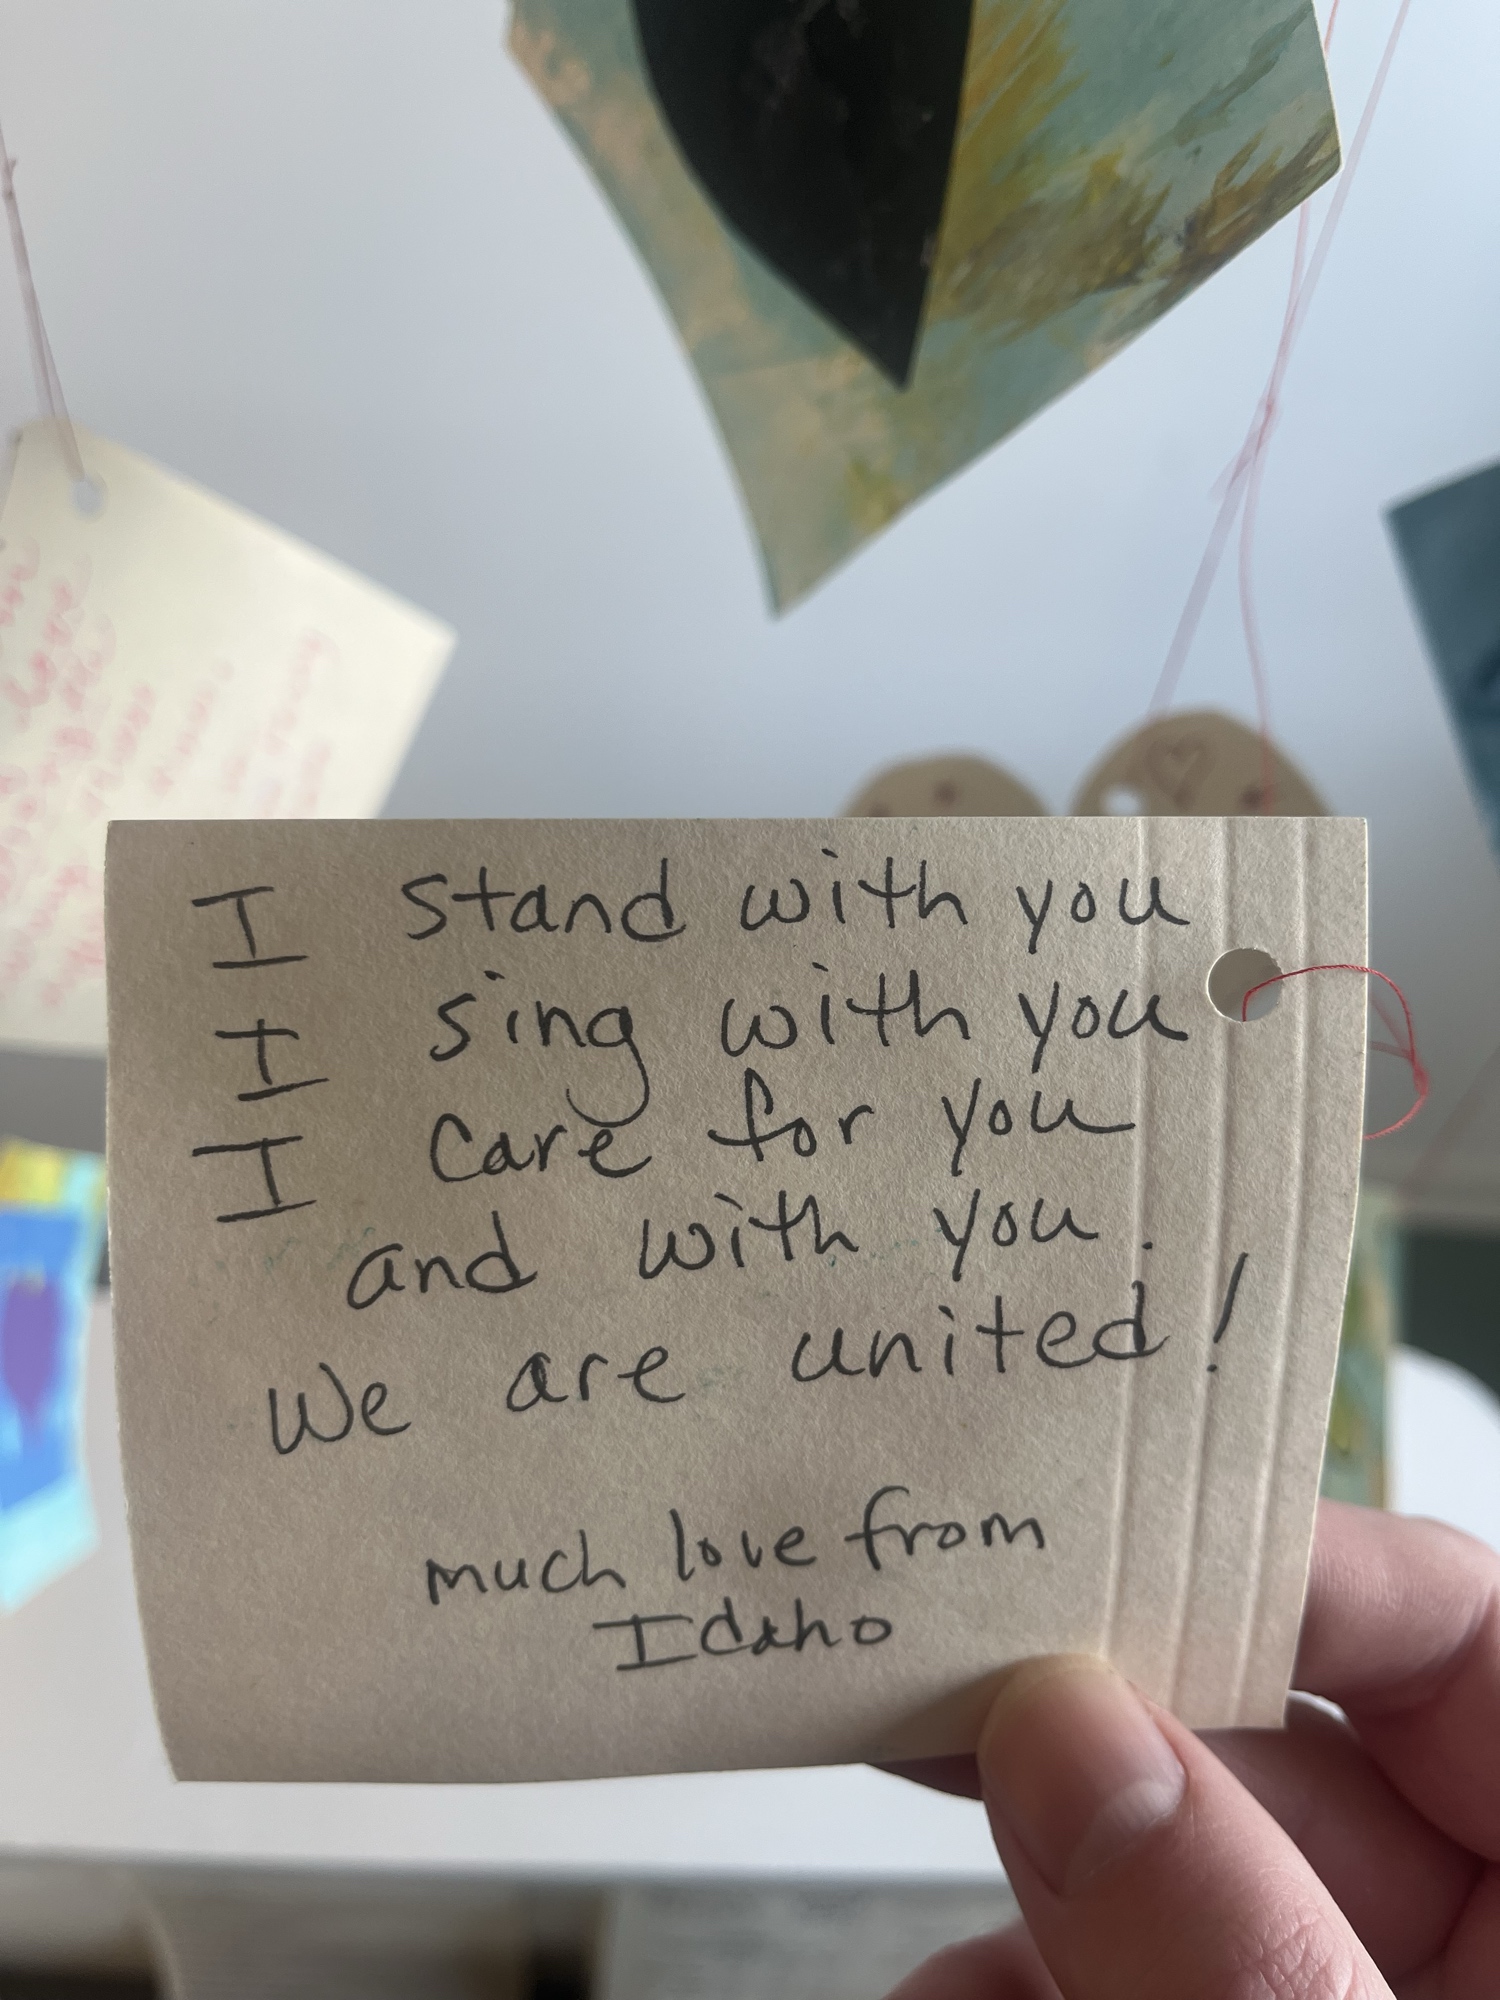 I stand with you
I sing with you
I care for you
and with you.
We are united!
much love from
Idaho